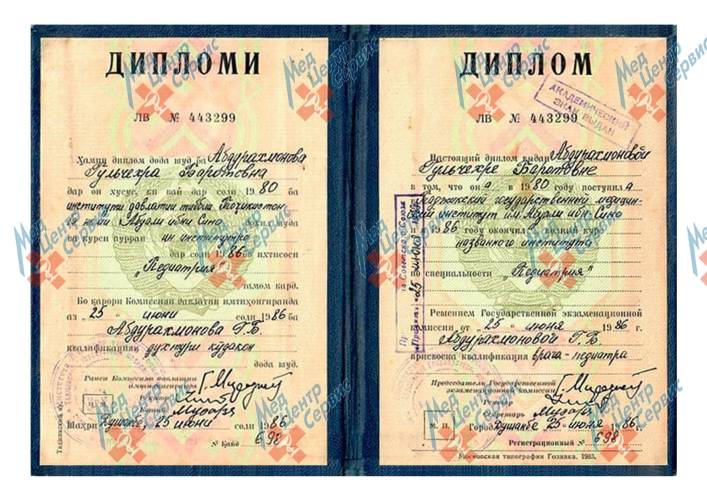 ДИПЛОМИ
ЛВ № 443299
Ҳамин диплом дода шуд ба Абдурахмонова
Гульчехра Баротовна
дар он хусус, ки вай дар соли 1980 ба
институти давлатии тиббии Тоҷикистон
ба номи Абӯалӣ ибни Сино
ва курси пурраи ин институтро
дар соли 1986 ба ихтисоси
„Педиатрия“
тамом кард.
Бо қарори Комиссияи давлатии имтиҳонгиранда
аз „25“ июни соли 1986 ба
Абдурахмонова Г.Б.
квалификацияи духтури кӯдакон
дода шуд.
Раиси Комиссияи давлатии
имтиҳонгиранда
Ректор
Котиб
Шаҳри Душанбе, 25 июни соли 1986
№ Қайд 698
ДИПЛОМ
АКАДЕМИЧЕСКИЙ
ЗНАК ВЫДАН
ЛВ № 443299
Настоящий диплом выдан Абдурахмоновой
Гульчехре Баротовне
в том, что она в 1980 году поступила
в Таджикский государственный медицин-
ский институт им. Абуали ибн Сино
и в 1986 году окончила полный курс
названного института
по специальности „Педиатрия“
Решением Государственной экзаменационной
комиссии от „25“ июня 1986 г.
Абдурахмоновой Г.Б.
присвоена квалификация врача-педиатра
Председатель Государственной
экзаменационной комиссии
Ректор
Секретарь
М. П. Город Душанбе 25 июня 1986 г.
Регистрационный № 698
Московская типография Гознака. 1985.
Мед Центр Сервис